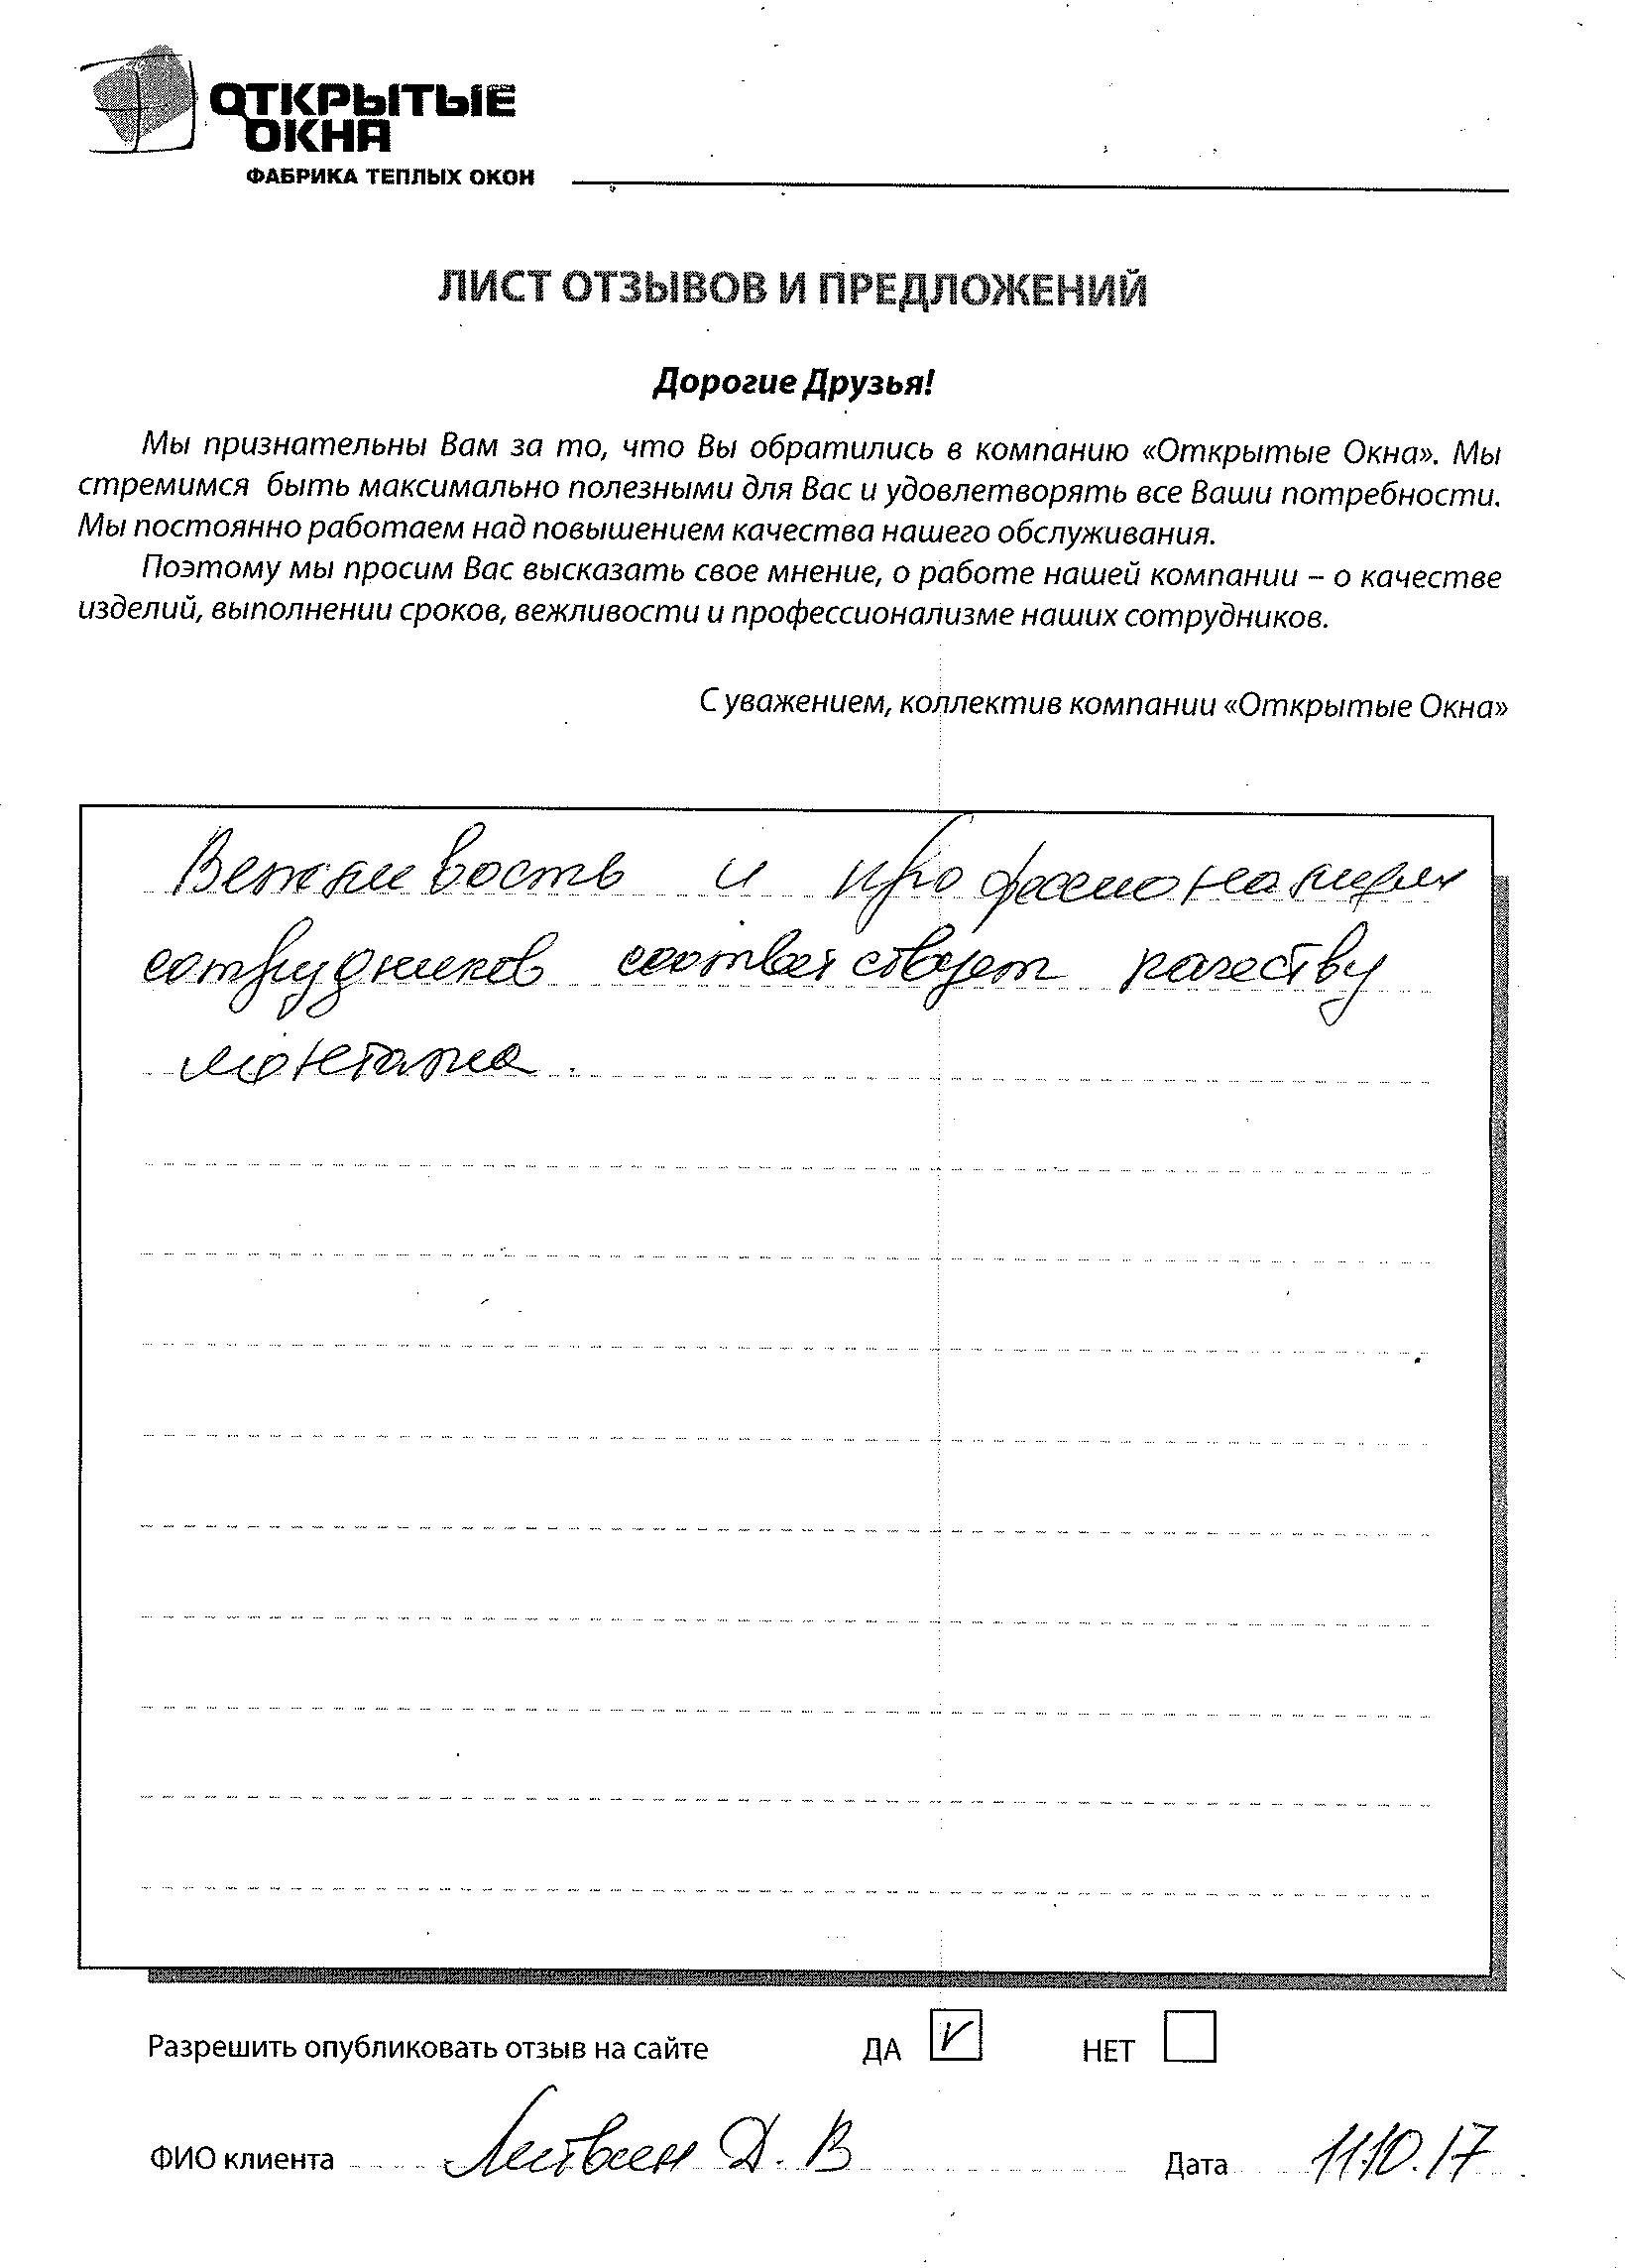 ОТКРЫТЫЕ
ОКНА
ФАБРИКА ТЕПЛЫХ ОКОН
ЛИСТ ОТЗЫВОВ И ПРЕДЛОЖЕНИЙ
Дорогие Друзья!
Мы признательны Вам за то, что Вы обратились в компанию «Открытые Окна». Мы
стремимся быть максимально полезными для Вас и удовлетворять все Ваши потребности.
Мы постоянно работаем над повышением качества нашего обслуживания.
Поэтому мы просим Вас высказать свое мнение, о работе нашей компании – о качестве
изделий, выполнении сроков, вежливости и профессионализме наших сотрудников.
С уважением, коллектив компании «Открытые Окна»
Вежливость и профессионализм
сотрудников соответствует качеству
монтажа.
Разрешить опубликовать отзыв на сайте ДА V НЕТ
ФИО клиента Литвин Д. В Дата 11.10.17